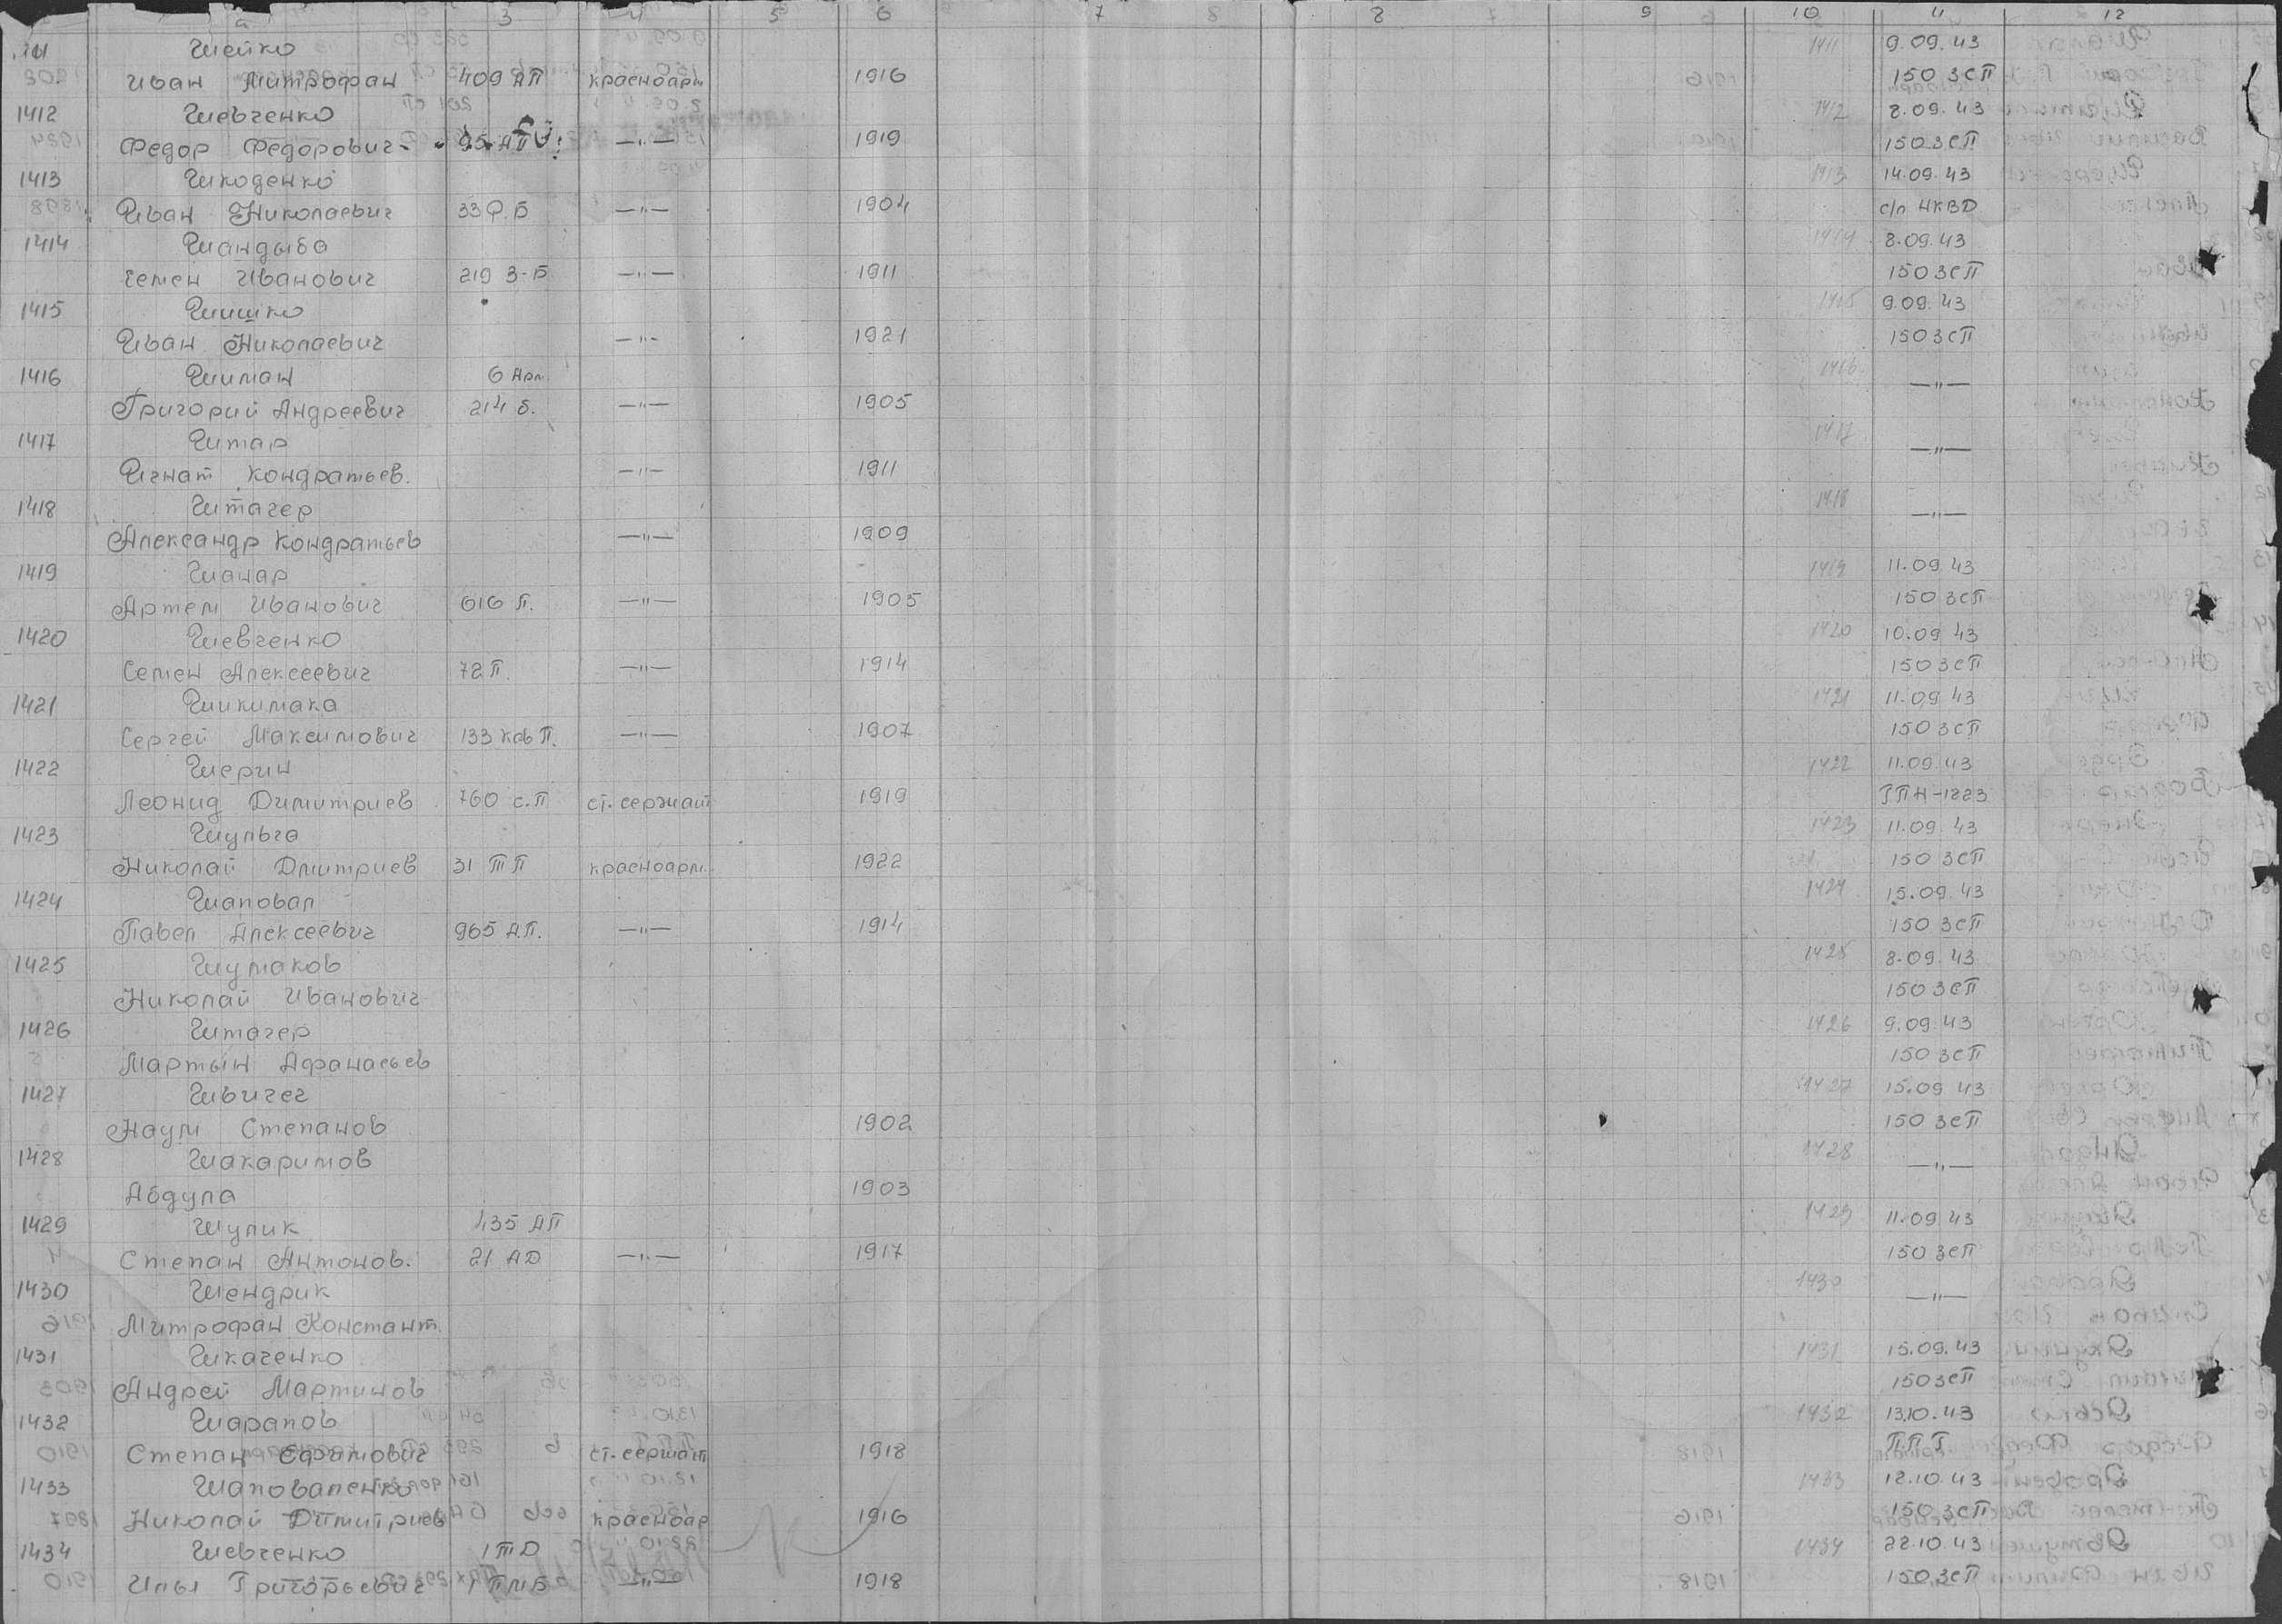 2 3 4 5 6 7 8 9 10 11 12
1411 Шейко 1411 9.09.43
Иван Митрофан 409 АП красноарм 1916 150 ЗСП
1412 Шевченко 1412 8.09.43
Федор Федорович 95 АП —"— 1919 150 ЗСП
1413 Шкоденко 1413 14.09.43
Иван Николаевич 33 Р.Б —"— 1904 с/п НКВД
1414 Шандыба 1414 8.09.43
Семен Иванович 219 З-Б —"— 1911 150 ЗСП
1415 Шишко 1415 9.09.43
Иван Николаевич —"— 1921 150 ЗСП
1416 Шиман 6 Арм. 1416 —"—
Григорий Андреевич 214 б. —"— 1905
1417 Штар 1417 —"—
Игнат Кондратьев. —"— 1911
1418 Штагер 1418 —"—
Александр Кондратьев —"— 1909
1419 Шанар 1419 11.09.43
Артем Иванович 616 П. —"— 1905 150 ЗСП
1420 Шевченко 1420 10.09.43
Семен Алексеевич 72 П. —"— 1914 150 ЗСП
1421 Шикимака 1421 11.09.43
Сергей Максимович 133 кав П. —"— 1907 150 ЗСП
1422 Шерин 1422 11.09.43
Леонид Димитриев 760 с.П ст. сержант 1919 -1223
1423 Шульга 1423 11.09.43
Николай Дмитриев 31 ТП красноарм. 1922 150 ЗСП
1424 Шаповал 1424 15.09.43
Павел Алексеевич 965 А.П. —"— 1914 150 ЗСП
1425 Шумаков 1425 8.09.43
Николай Иванович 150 ЗСП
1426 Штагер 1426 9.09.43
Мартын Афанасьев 150 ЗСП
1427 Швичег 1427 15.09.43
Наум Степанов 1902 150 ЗСП
1428 Шакаримов 1428 —"—
Абдула 1903
1429 Шулик 435 АП 1429 11.09.43
Степан Антонов. 21 АД —"— 1917 150 ЗСП
1430 Шендрик 1430 —"—
Митрофан Констант.
1431 Шкаченко 1431 15.09.43
Андрей Мартинов 150 ЗСП
1432 Шарапов 1432 13.10.43
Степан Ефимович ст. сержант 1918 ППГ
1433 Шаповаленко 1433 12.10.43
Николай Димитриев красноар 1916 150 ЗСП
1434 Шевченко 1 ТД 1434 22.10.43
Илья Григорьевич 1 ПМБ —"— 1918 150 ЗСП